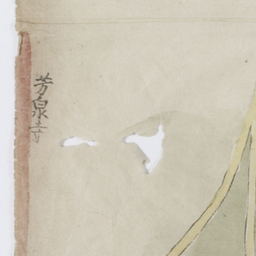 芳泉寺